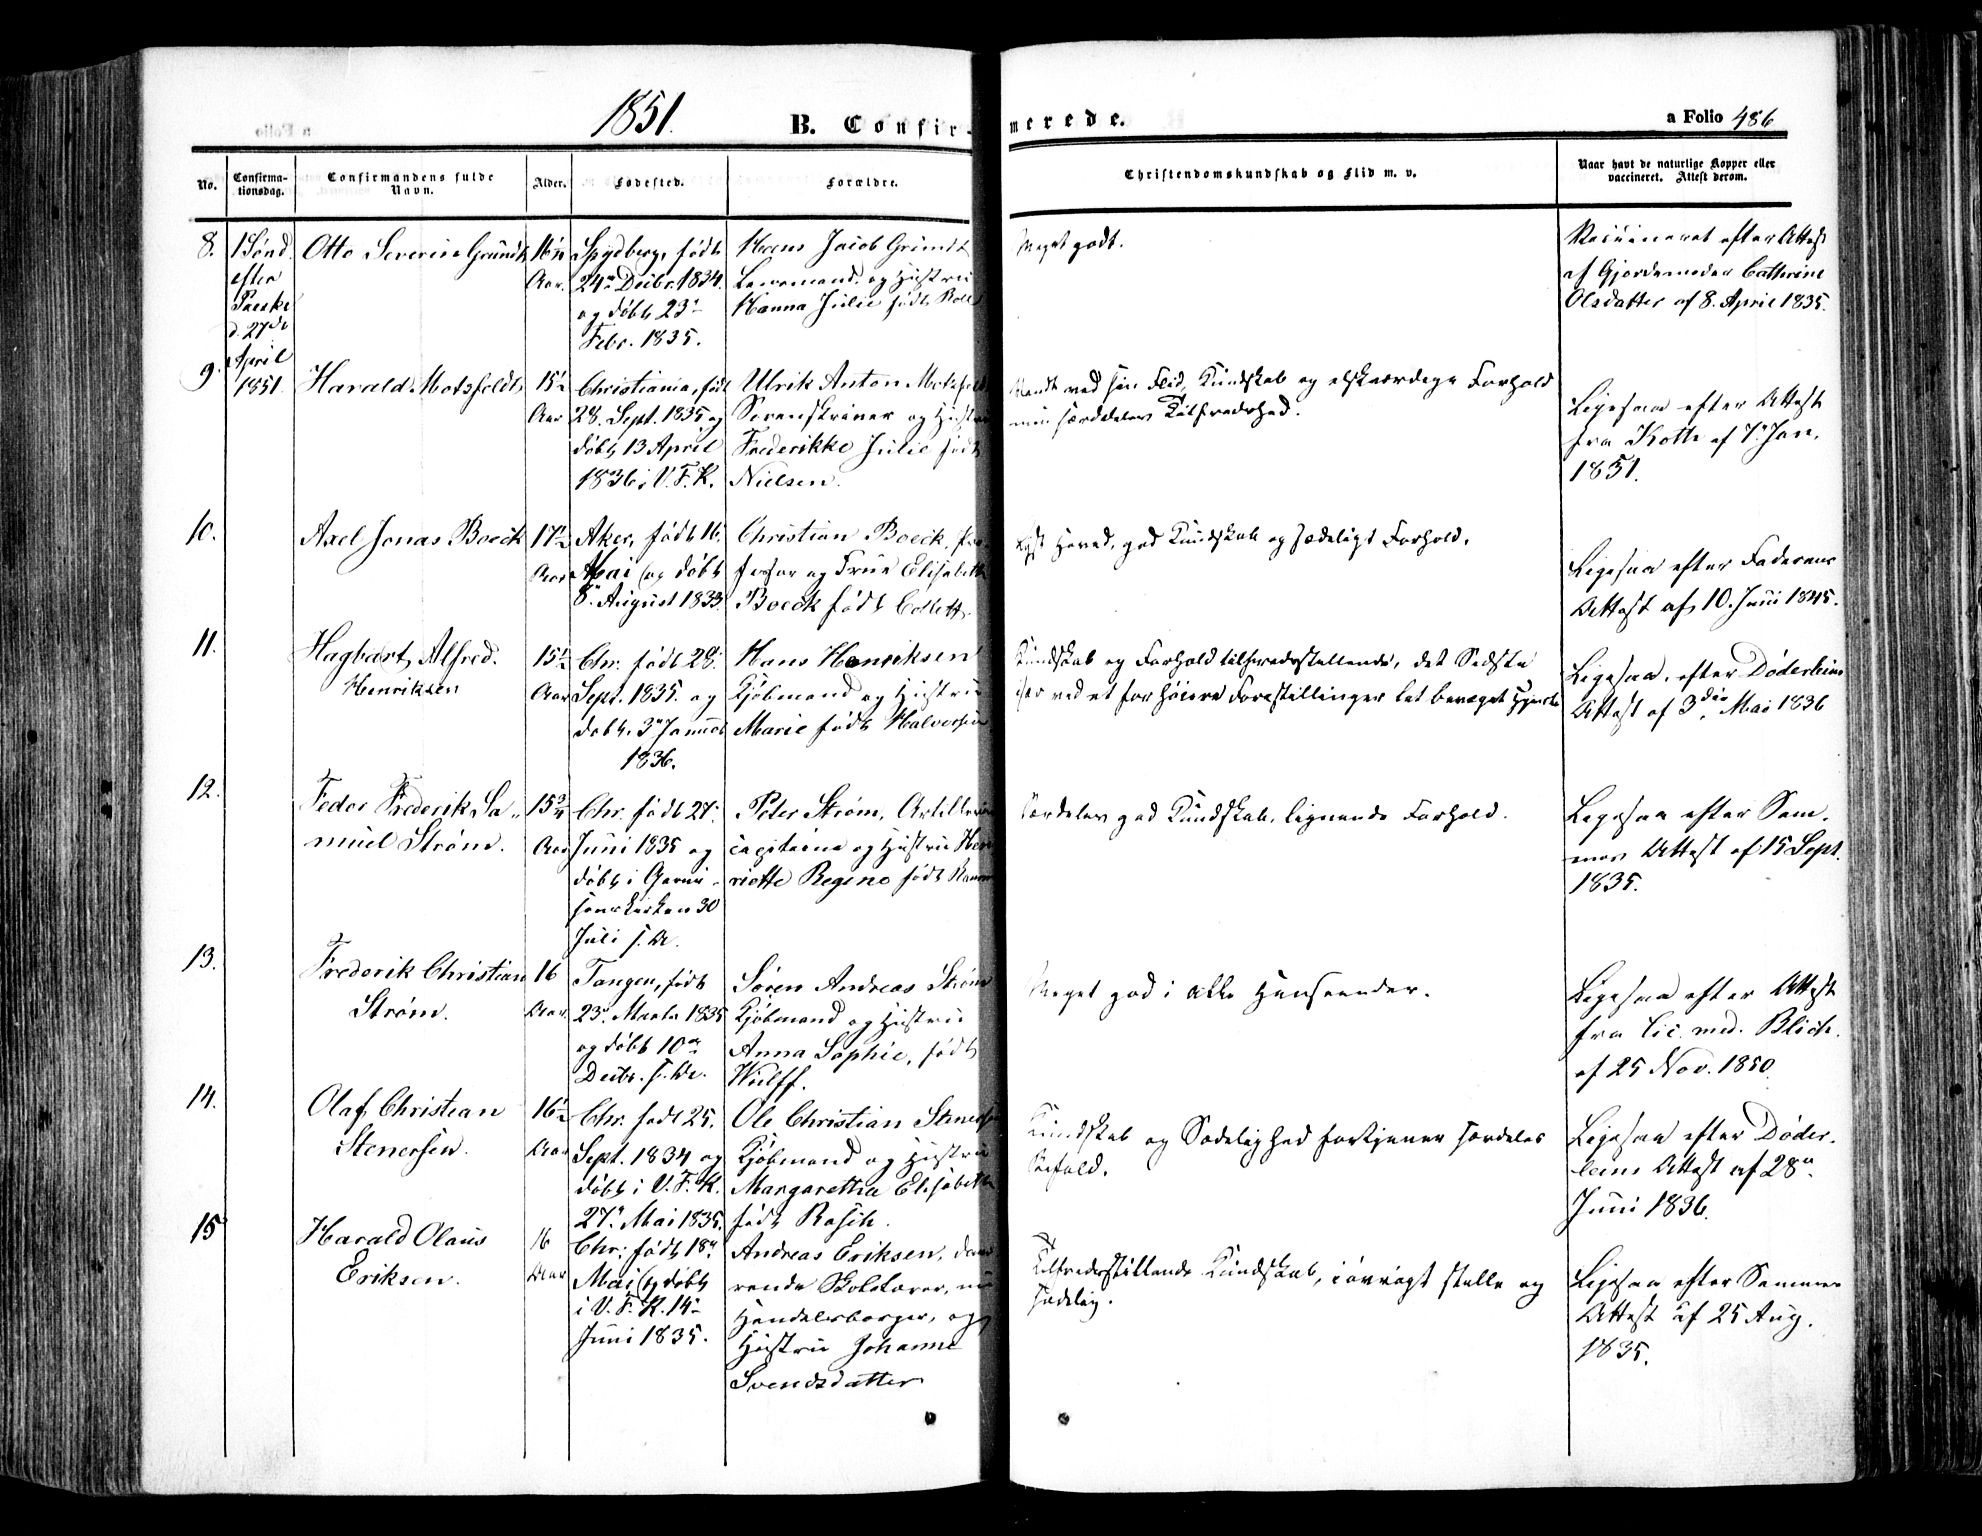 1851.
B. Confirmerede.
a Folio 486
No.
Confirmationsdag.
Confirmandens fulde Navn.
Alder.
Fødested.
Forældre.
Christendomskundskab og Flid m. v.
Naar havt de naturlige Kopper eller vaccineret. Attest derom.
8.
1 Sønd.
efter
Paaske
d. 27de
April
1851.
Otto Severin Grundt
16 1/2
Aar.
Spydberg, født
24de Decbr. 1834.
og døbt 23de
Febr. 1835.
Jacob Grundt
Lensmand, og Hustru
Hanna Julie født
Meget godt.
Vaccineret efter Attest
af Gjordemoder Cathrine
Olsdatter af 8. April 1835.
9.
Harald Motzfeldt
15 1/2
Aar
Christiania, født
28. Sept. 1835 og
døbt 13 April
1836 i V. F. K.
Ulrik Anton Motzfeldt
Sorenskriver og Hustru
Frederikke Julie født
Nielsen.
Vandt ved sin Flid, Kundskab og elskværdige Forhold
min særdeles Tilfredshed.
Ligesaa efter Attest
fra Koth af 7. Jan.
1851.
10.
Axel Jonas Boeck
17 1/2
Aar
Aker, født 16.
Mai (og døbt
8. August 1833.
Christian Boeck, Pro-
fessor og Frue Elisabeth
Boeck født Collett.
Lyst Hoved, god Kundskab og sædeligt Forhold.
Ligesaa efter Faderens
Attest af 10. Juni 1845.
11.
Hagbart Alfred.
Henriksen
15 1/2
Aar
Chr. født 28.
Sept. 1835. og
døbt. 3. Januar
1836.
Hans Henriksen
Kjøbmand og Hustru
Marie født Halvorsen
Kundskab og Forhold tilfredsstillende, det Sidste
især ved et for høiere Forestillinger let bevæget Hjerte
Ligesaa, efter Døderleins
Attest af 3die Mai 1836
12.
Fedor Frederik Sa-
muel Strøm.
15 3/4
Aar
Chr. født 27.
Juni 1835 og
døbt i Garni-
sonskirken 30
Juli s. A.
Peter Strøm, Artilleri
capitaine og Hustru Hen
riette Regine født
Særdeles god Kundskab, lignende Forhold.
Ligesaa efter Sam-
mes Attest af 15 Sept.
1835.
13.
Frederik Christian
Strøm.
16
Aar.
Tangen, født
23. Marts 1835
og døbt 10de
Decbr. s. A.
Søren Andreas Strøm
Kjøbmand og Hustru
Anna Sophie, født
Wulff.
Meget god i alle Henseender.
Ligesaa efter Attest
fra Lic. med. Blich.
af 25 Nov. 1850.
14.
Olaf Christian
Stenersen.
16 1/2
Aar
Chr. født 25.
Sept. 1834 og
døbt i V. F. K.
27. Mai 1835.
Ole Christian Stenersen
Kjøbmand og Hustru
Margaretha Elisabeth
født Rasch.
Kundskab og Sædelighed fortjener særdeles
Bifald.
Ligesaa efter Døder-
leins Attest af 28de
Juni 1836.
15
Harald Olaus
Eriksen.
16
Aar
Chr. født 18de
Mai, (og døbt
i V. F. K. 14de
Juni 1835.
Andreas Eriksen, dava-
rende Skolelærer, nu
Handelsborger, og
Hustru Johanne
Svendsdatter
Tilfredsstillende Kundskab, iøvrigt stille og
sædelig.
Ligesaa efter Sammes
Attest af 25 Aug.
1835.